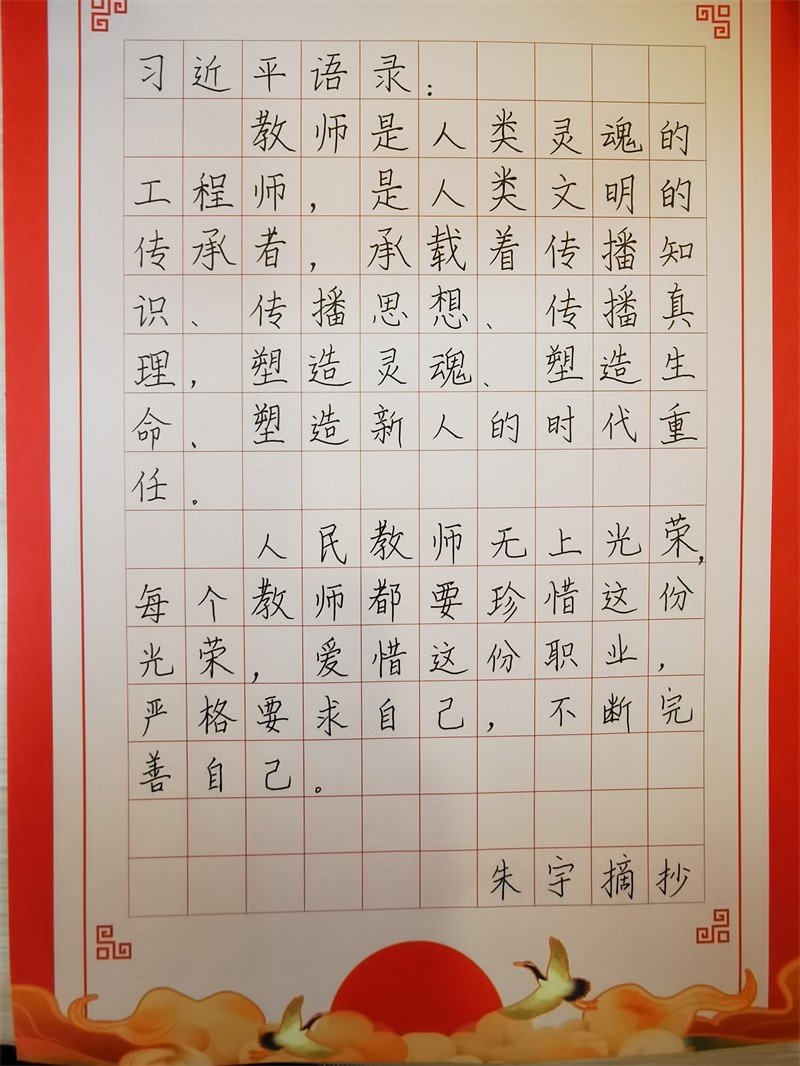 习近平语录：
教师是人类灵魂的
工程师，是人类文明的
传承者，承载着传播知
识、传播思想、传播真
理，塑造灵魂、塑造生
命、塑造新人的时代重
任。
人民教师无上光荣，
每个教师都要珍惜这份
光荣，爱惜这份职业，
严格要求自己，不断完
善自己。
朱宇摘抄